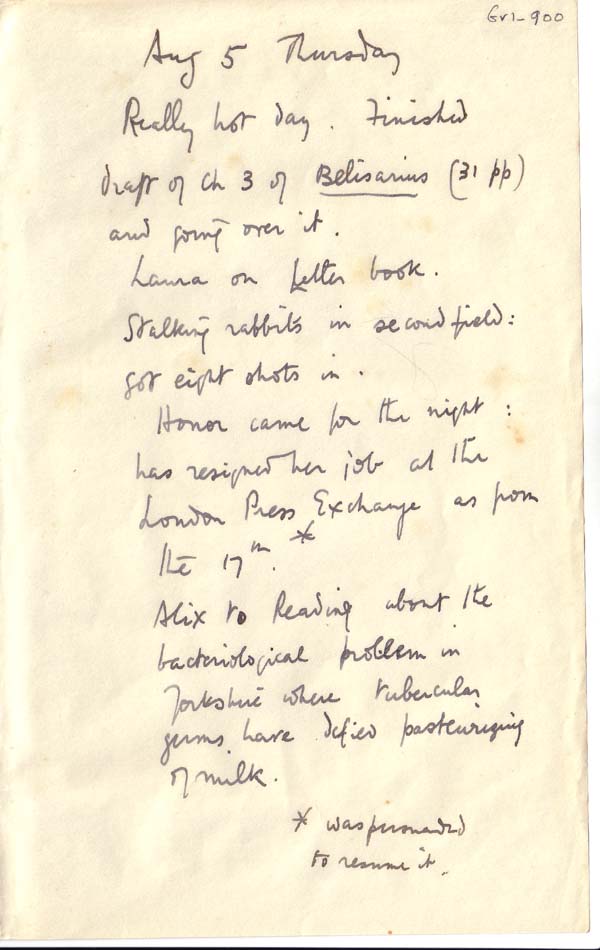 Gr1-900
Aug 5 Thursday
Really hot day. Finished
draft of Ch 3 of Belisarius (31 pp)
and going over it.
Laura on Letter book.
Stalking rabbits in second field:
got eight shots in.
Honor came for the night:
has resigned her job at the
London Press Exchange as from
the 17th. *
Alix to Reading about the
bacteriological problem in
Yorkshire where tubercular
germs have defied pasteurizing
of milk.
* was persuaded
to resume it.